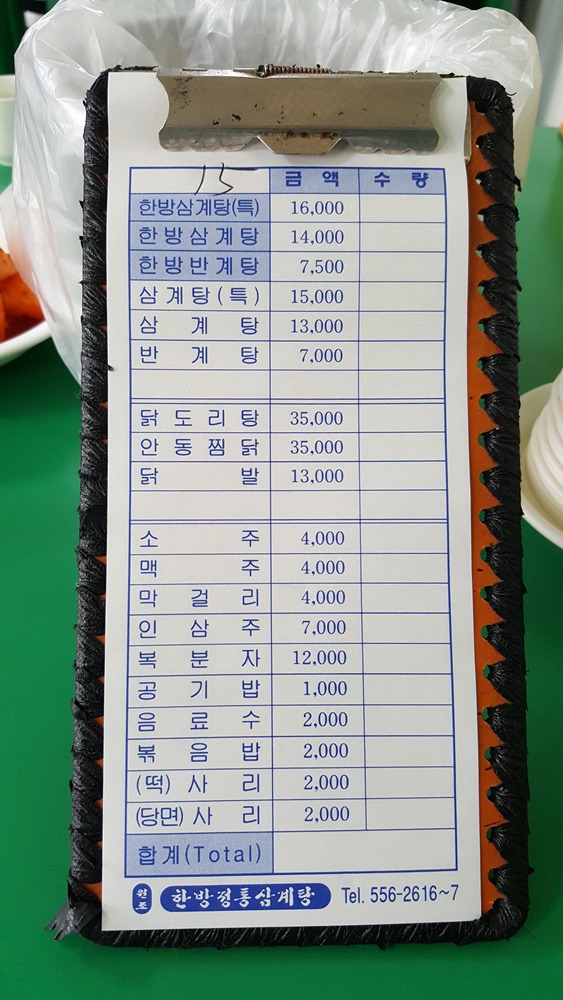 15 금 액 수 량
한방삼계탕(특) 16,000
한방삼계탕 14,000
한방반계탕 7,500
삼계탕(특) 15,000
삼 계 탕 13,000
반 계 탕 7,000
닭도리탕 35,000
안동찜닭 35,000
닭 발 13,000
소 주 4,000
맥 주 4,000
막 걸 리 4,000
인 삼 주 7,000
복 분 자 12,000
공 기 밥 1,000
음 료 수 2,000
볶 음 밥 2,000
(떡) 사 리 2,000
(당면) 사 리 2,000
합계(Total)
원조 한방정통삼계탕 Tel. 556-2616~7